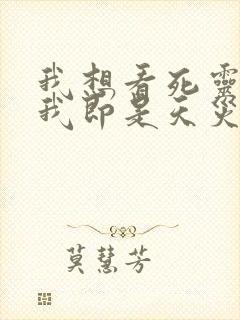 我想看死靈
我即是天災
莫慧芳